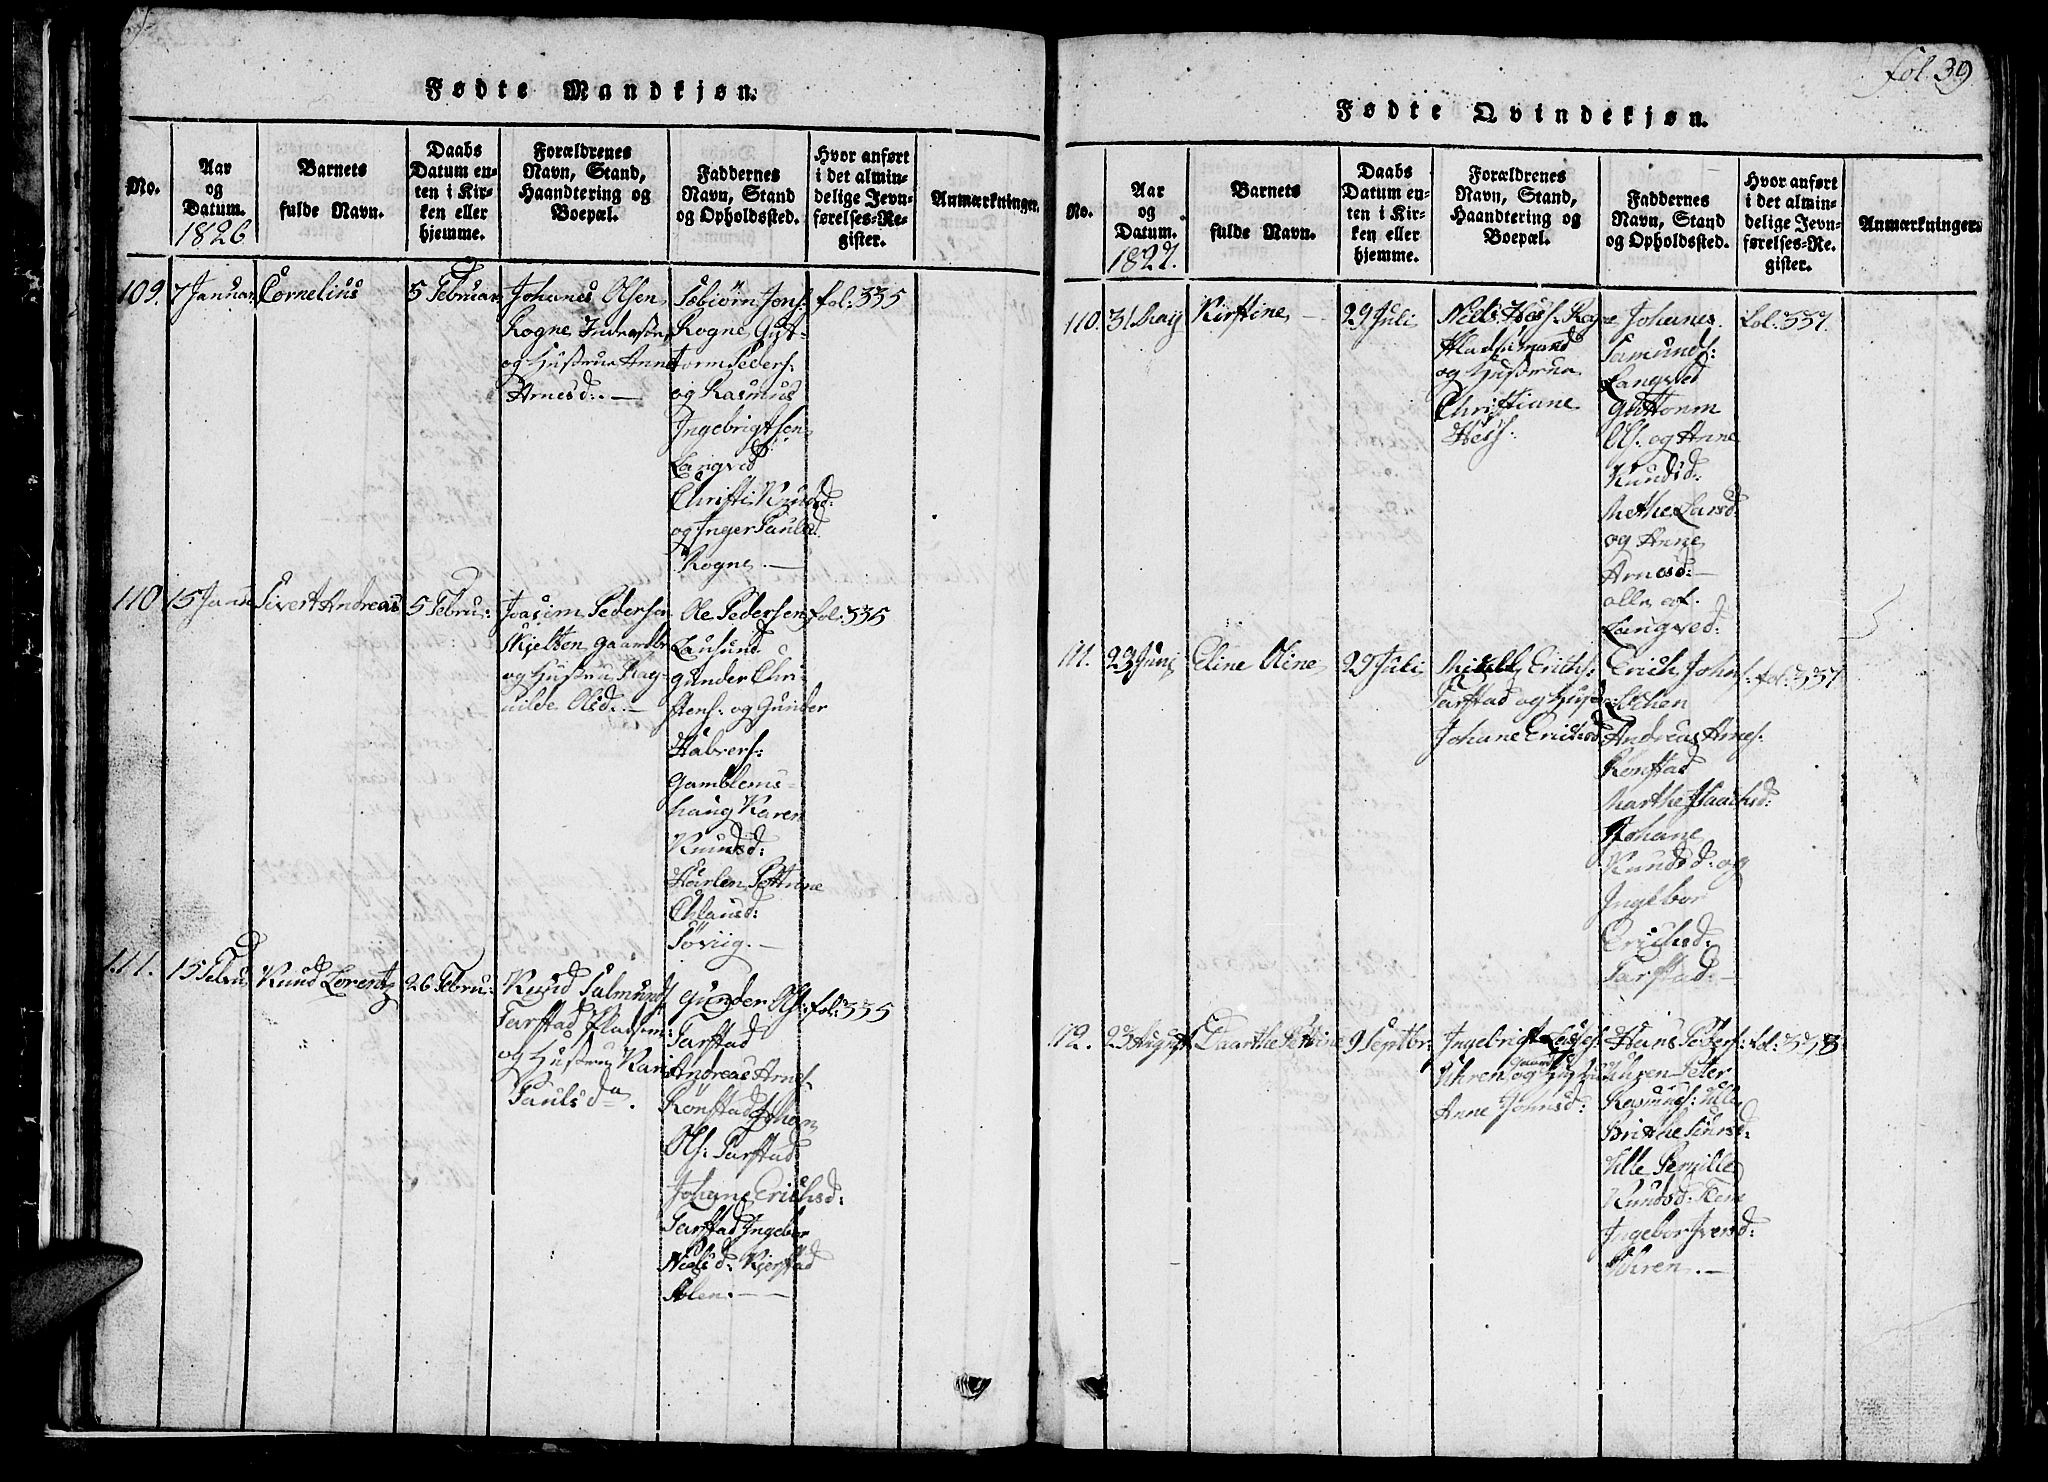 Fødte Mandkjøn.
No.
Aar
og
Datum.
1826
Barnets
fulde Navn.
Daabs
Datum en-
ten i Kir-
ken eller
hjemme.
Forældrenes
Navn, Stand,
Haandtering og
Boepæl.
Faddernes
Navn, Stand
og Opholdssted.
Hvor anført
i det almin-
delige Jevn-
førelses-Re-
gister.
Anmærkninger.
109.
7 Januar
Cornelius
5 Februar
Johanes Olsen
Rogne Inderste
og Hustrue Anne
Arnesd:. —
Torbiörn Jons:
Rogne Gut-
torm Peders:
og Rasmus
Ingebrigtsen
Langved
Christi Knudsd:
og Inger Paulsd.
Rogne. —
fol: 335
110
15 Janu
Sivert Andreas
5 Febru:
Joasim Pedersen
Skjelten gaardbr
og Hustru Rag-
nilde Olsd. —
Ole Pedersen
Lausund
gunder Chri-
stens: og Gunder
Halvers:
Gamblems-
haug Karen
Knudsd:
Harlen Pettrine
Clausd:
Söviig. —
fol: 335
111.
15 Febru
Knud Lorentz
26 Febru:
Knud Salmunds
Farstad Pladsm:
og Hustru Kari
Paulsda.
gunder Ols:
Farstad
Andreas Arnes.
Rönstad Johan
Ols: Farstad
Johane Erichsd:
Farstad Ingebor
Nielsd: Kjerstad
Alen. — —
fol: 335
fol. 39
Fødte Qvindekjøn.
No.
Aar
og
Datum.
1827.
Barnets
fulde Navn.
Daabs
Datum en-
ten i Kir-
ken eller
hjemme.
Forældrenes
Navn, Stand,
Haandtering og
Boepæl.
Faddernes
Navn, Stand
og Opholdssted.
Hvor anført
i det almin-
delige Jevn-
førelses-Re-
gister.
Anmærkninger.
110.
31 May
Kirstine —
29 Juli
Niels Hess: Rogne
Pladsmand
og Hustrue
Christiane
Hess:
Johanes
Samunds:
Langved
Guttorm
Ols. og Anne
Knudsd:
Methe Larsd:
og Anne
Arnesd: —
alle af.
Langved:
fol. 337.
111.
23 Junj
Eline Oline
29 Juli
Erichs:
Farstad og Hustr:
Johane Erichsd
Erich Johns:
Lochen
Andreas Arnes:
Ronstad
Marthe Isaachsd:
Johane
Knudsd: og
Ingebor
Erichsd:
Farstad: —
fol: 337
112.
23 August
Daarthe Pettrine
9 Septbr:
Ingebrigt
Uhren gaardb
og Hustru
Anne Johnsd:
Hans Peders:
Uhren Peter
Rasmus: Ulle
Brithe
Ulle Pernille
Knudsd:
Ingebor Iversd:
Uhren. —
fol: 338